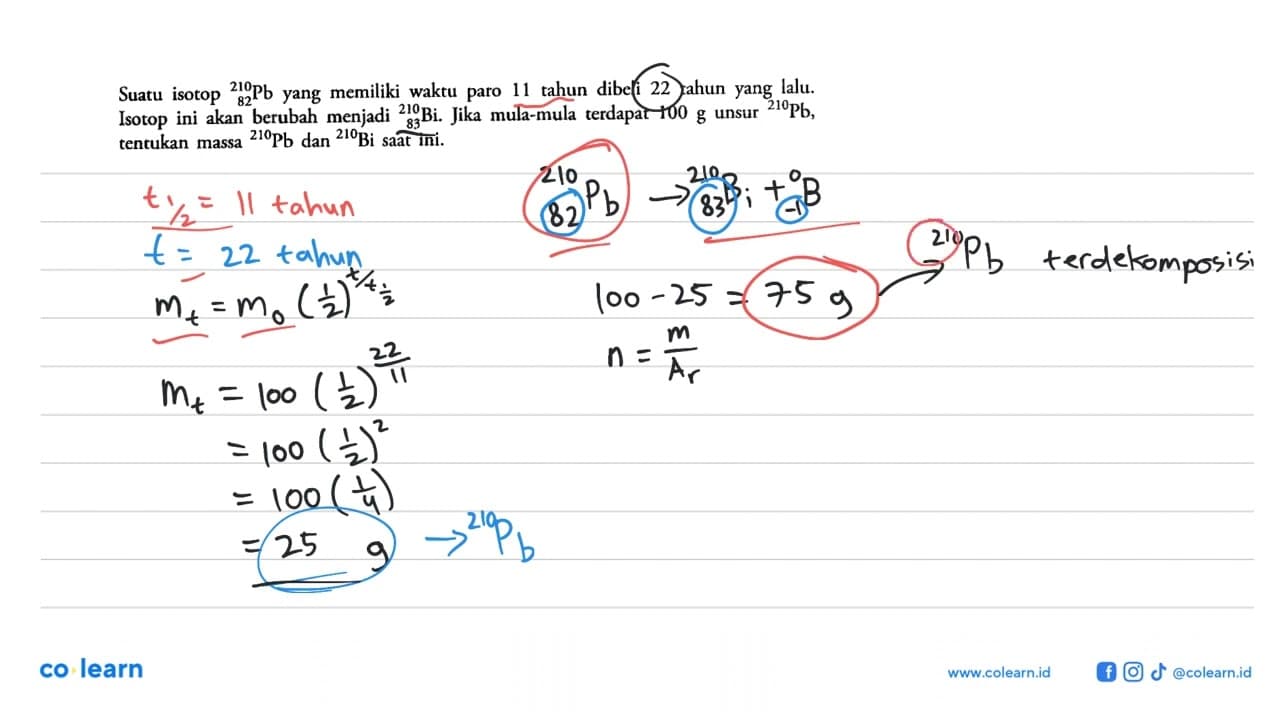 Suatu isotop ²¹⁰₈₂Pb yang memiliki waktu paro 11 tahun dibeli 22 tahun yang lalu.
Isotop ini akan berubah menjadi ²¹⁰₈₃Bi. Jika mula-mula terdapat 100 g unsur ²¹⁰Pb,
tentukan massa ²¹⁰Pb dan ²¹⁰Bi saat ini.
t½ = 11 tahun
t = 22 tahun
m_t = m₀ (1/2)^(t/t½)
m_t = 100 (1/2)^(22/11)
= 100 (1/2)²
= 100 (1/4)
= 25 g → ²¹⁰Pb
²¹⁰₈₂Pb → ²¹⁰₈₃Bi + ⁰₋₁B
100 - 25 = 75 g → ²¹⁰Pb terdekomposisi
n = m/Ar
co learn
www.colearn.id
@colearn.id